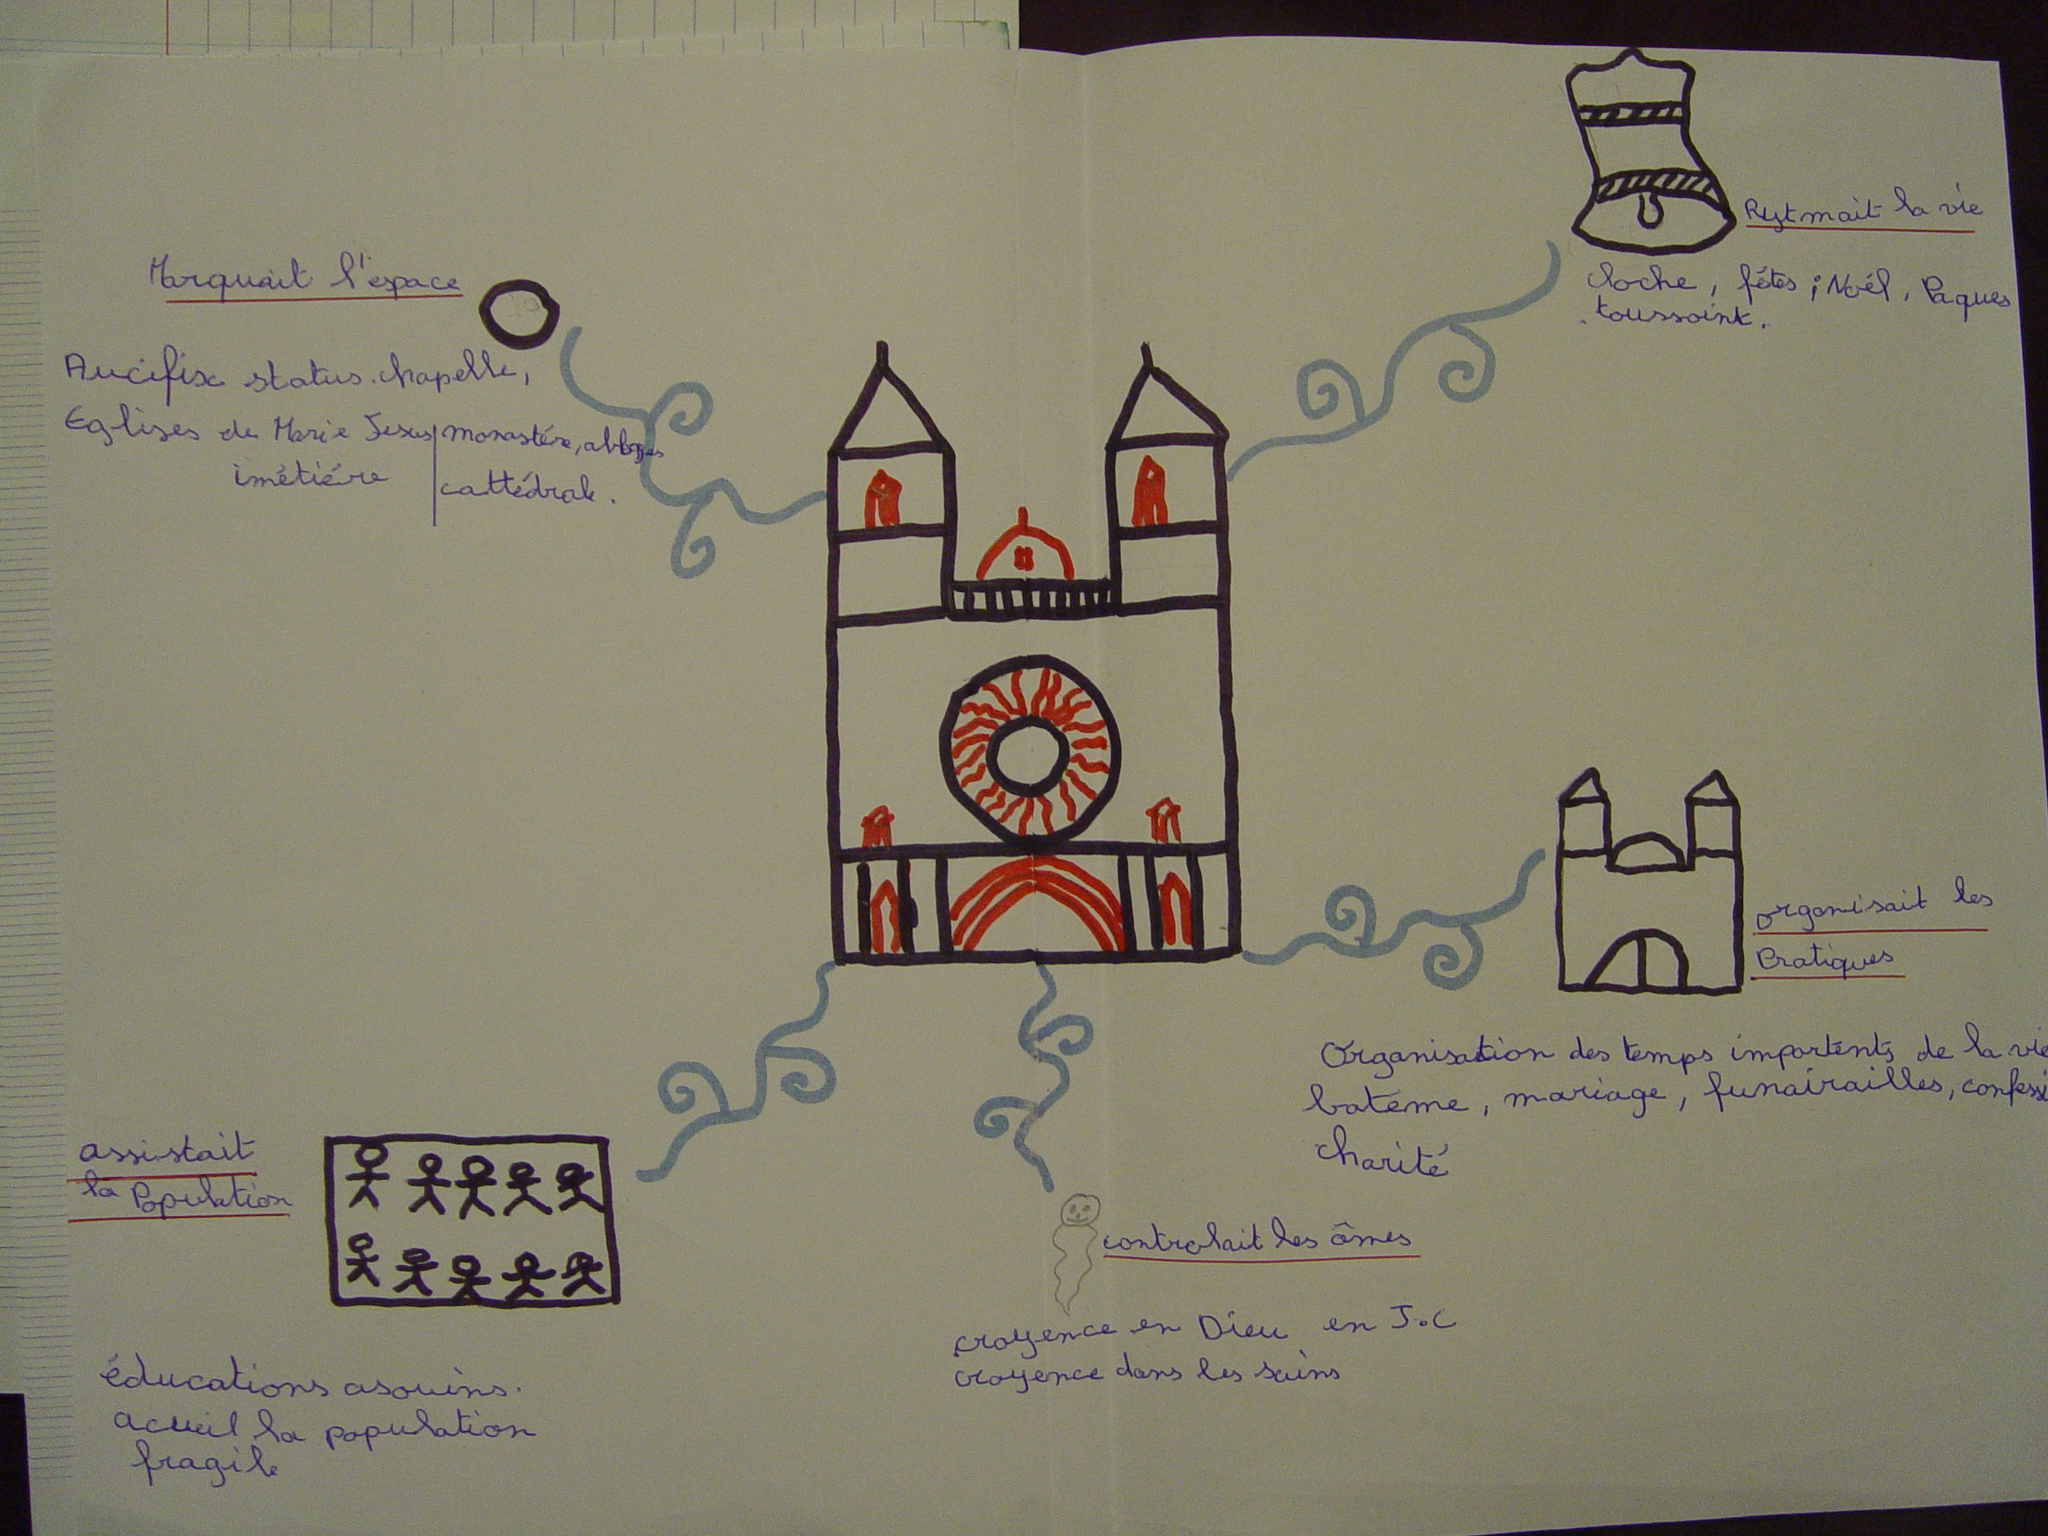 Marquait l'espace
Aucifix status. chapelle,
Eglises de Marie Jesus
imétiére
monastére, abbyes
cattédrale.
Rytmait la vie
cloche, fêtes ; Noél, Paques
toussaint.
organisait les
Pratiques
Organisation des temps importents de la vie
batéme, mariage, funairailles, confessi
charité
controlait les âmes
croyence en Dieu en J.C
croyence dans les sains
assistait
la Population
éducations asouins.
acueil la population
fragile